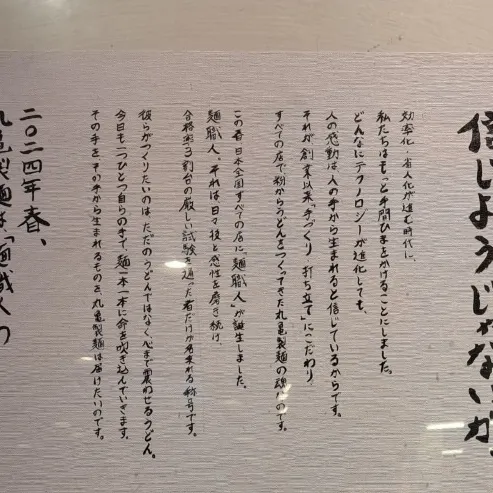 信じようじゃないか。
効率化・省人化が進む時代に、
私たちはもっと手間ひまをかけることにしました。
どんなにテクノロジーが進化しても、
人の感動は人の手から生まれると信じているからです。
それが創業以来、「手づくり・打ち立て」にこだわり、
すべての店で粉からうどんをつくってきた丸亀製麺の魂なのです。
この春、日本全国すべての店に「麺職人」が誕生しました。
麺職人、それは日々後と感性を磨き続け、
合格率3割台の厳しい試験を通った者だけが名乗れる称号です。
彼らがつくりたいのは、ただのうどんではなく、心まで震わせるうどん。
今日も一つひとつ自らの手で、麺一本一本に命を吹き込んでいきます。
その手を、その手から生まれるものを、丸亀製麺は届けたいのです。
二〇二四年春、
丸亀製麺は、「麺職人」の